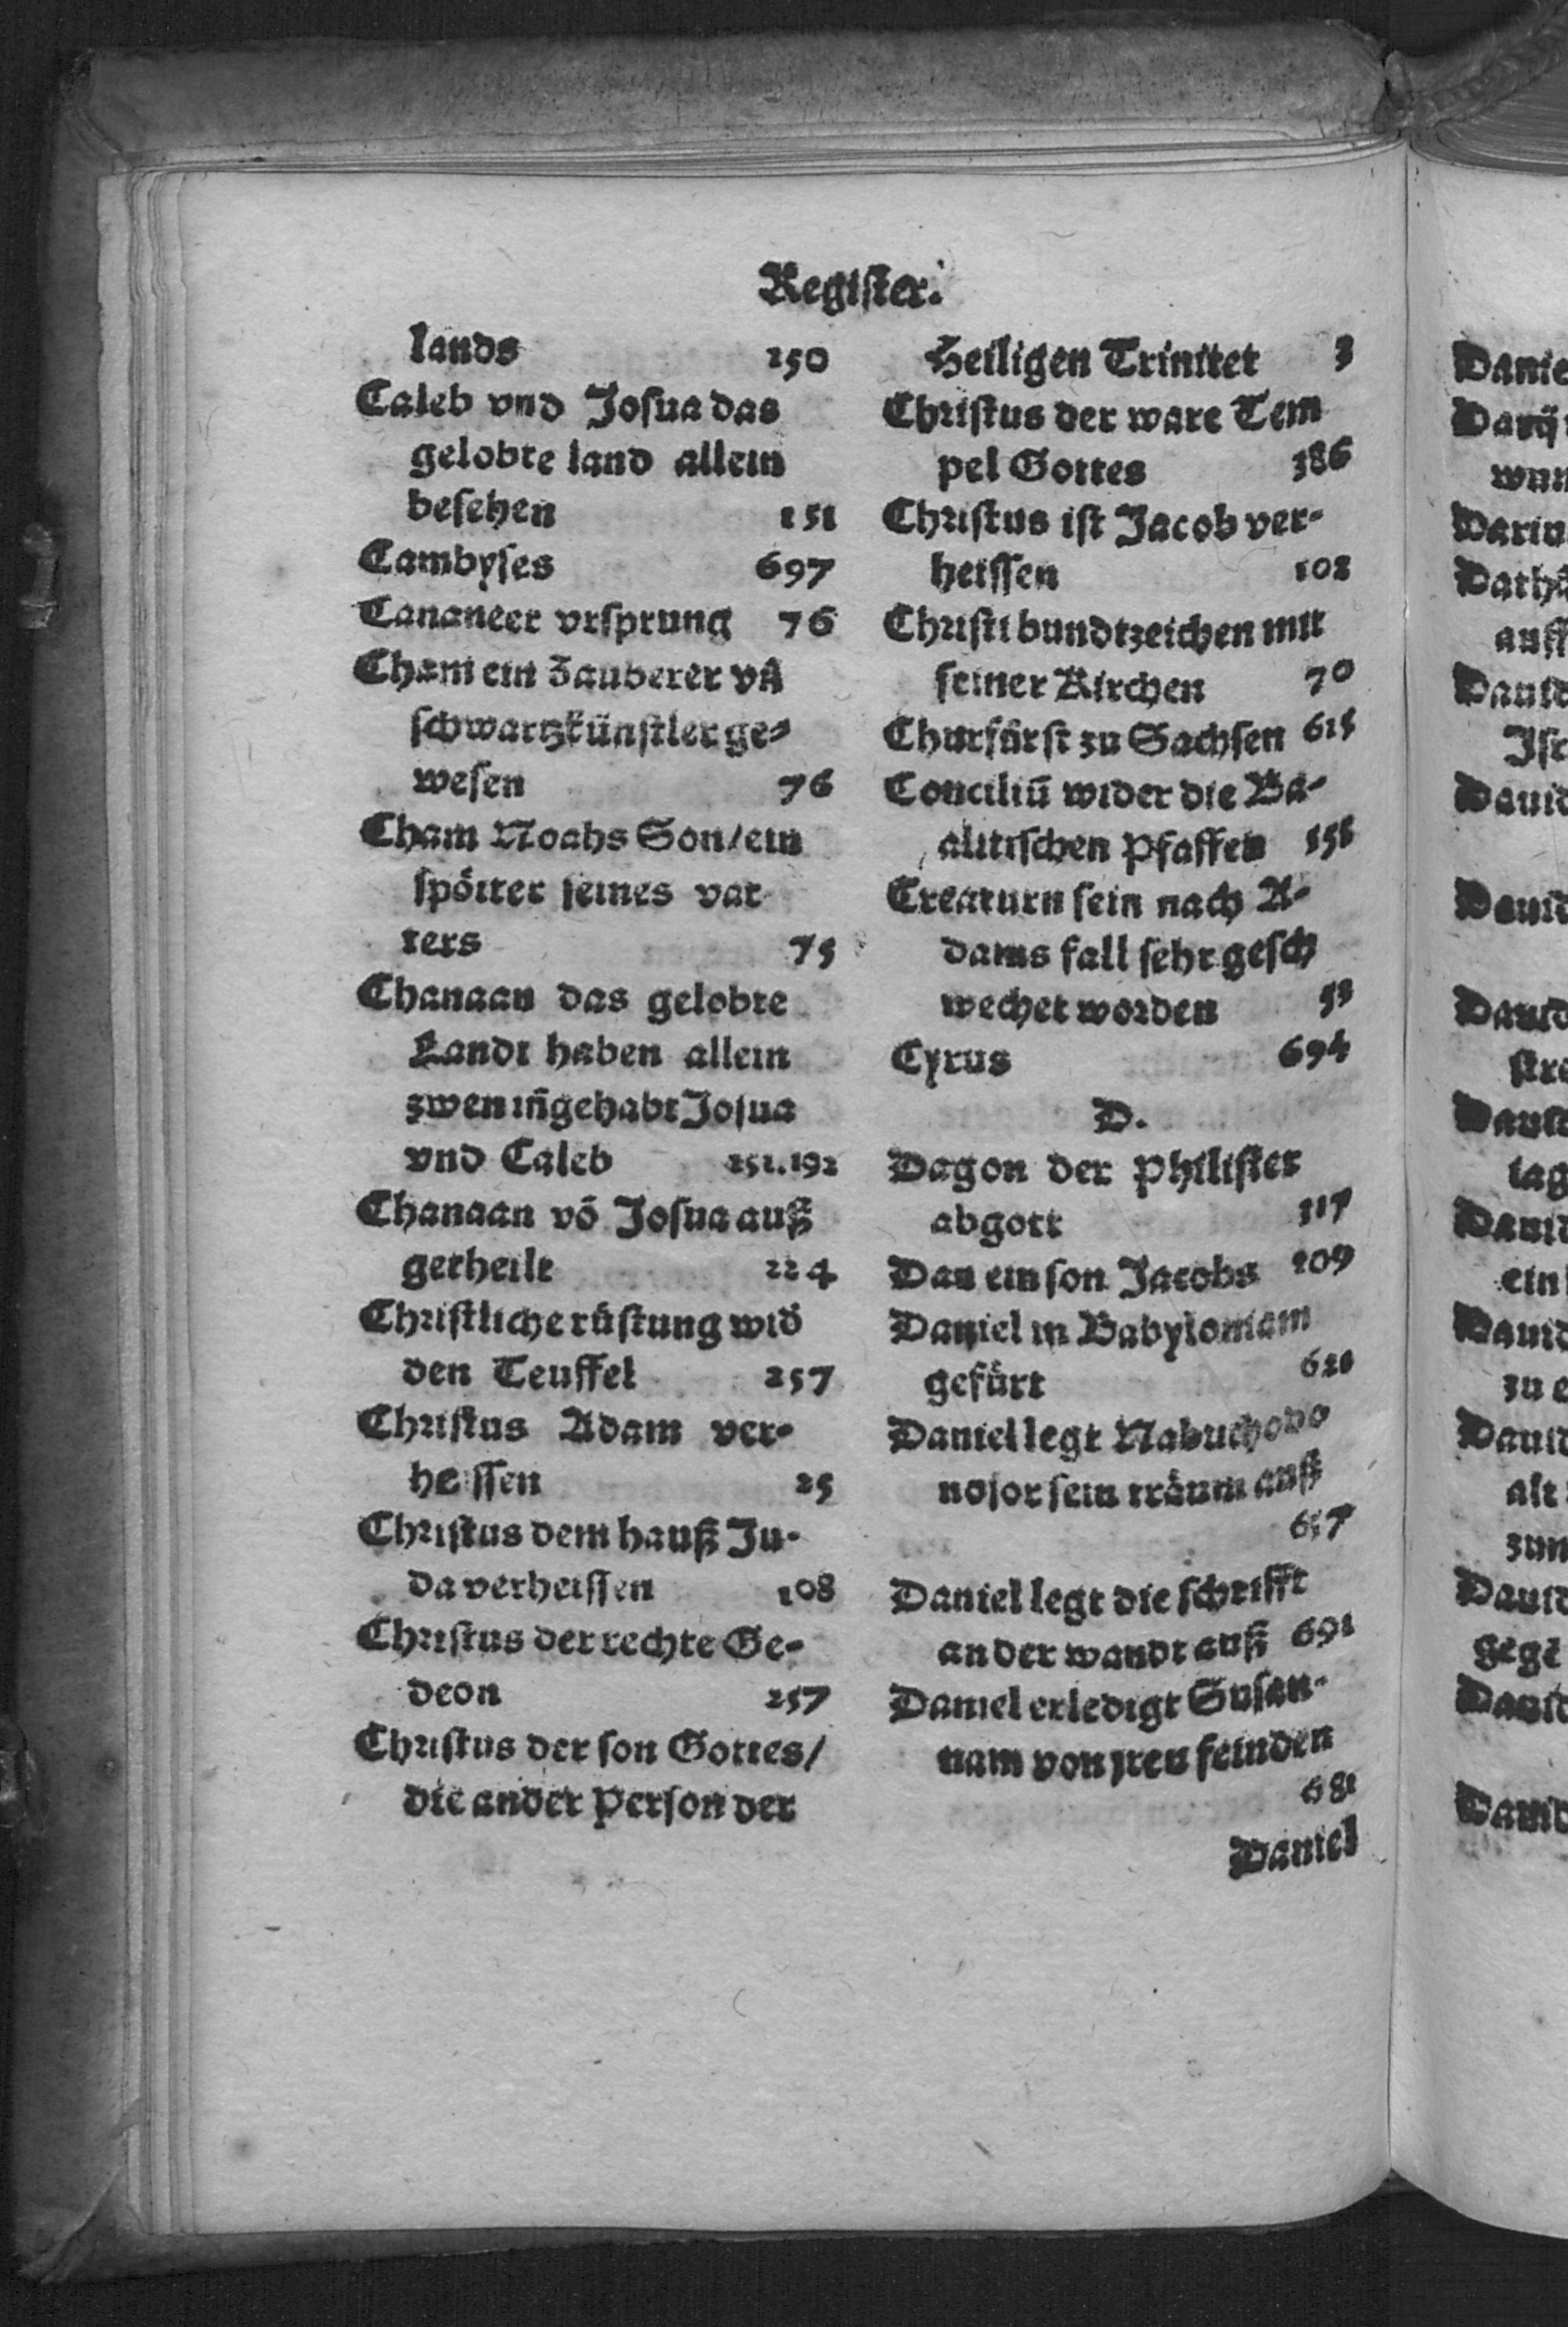 Regiſter.
lands 250
Caleb vnd Joſua das
gelobte land allein
beſehen 151
Cambyſes 697
Cananeer vrſprung 76
Cham ein Zauberer vñ
ſchwartzkünſtler ge-
weſen 76
Cham Noahs Son/ein
ſpötter ſeines vat
ters 75
Chanaan das gelobte
Landt haben allein
zwen iñgehabt Joſua
vnd Caleb 151.192
Chanaan võ Joſua auß
getheilt 224
Chriſtliche rüſtung wid
den Teuffel 257
Chriſtus Adam ver-
heiſſen 25
Chriſtus dem hauß Ju-
da verheiſſen 108
Chriſtus der rechte Ge-
deon 257
Chriſtus der ſon Gottes/
die ander Perſon der
Heiligen Trinitet 3
Chriſtus der ware Tem
pel Gottes 386
Chriſtus iſt Jacob ver-
heiſſen 102
Chriſti bundtzeichen mit
ſeiner Kirchen 70
Churfürſt zu Sachſen 615
Conciliũ wider die Ba-
alitiſchen Pfaffen
Creaturn ſein nach A-
dams fall ſehr geſch
wechet worden 53
Cyrus 694
D.
Dagon der Philiſter
abgott 317
Dan ein ſon Jacobs 109
Daniel in Babyloniam
gefürt
Daniel legt Nabuchodo
noſor ſein träum auß
Daniel legt die ſchrifft
an der wandt auß 691
Daniel erledigt Suſan-
nam von jren feinden
681
Daniel